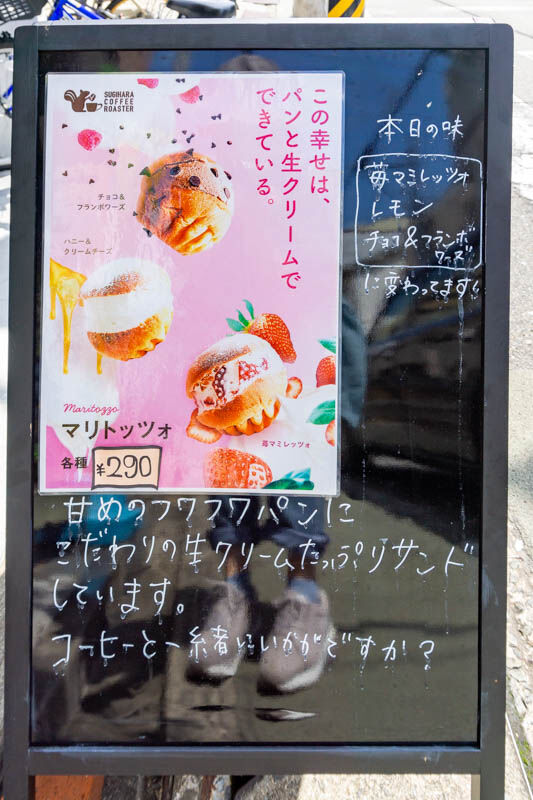 SUGIHARA
COFFEE
ROASTER
この幸せは、
パンと生クリームで
できている。
チョコ&
フランボワーズ
ハニー&
クリームチーズ
苺マミレッツォ
Maritozzo
マリトッツォ
各種 ¥290
本日の味
苺マミレッツォ
レモン
チョコ&フランボ
ワーズ
に変わってます!
甘めのフワフワパンに
こだわりの生クリームたっぷりサンド
しています。
コーヒーと一緒にいかがですか?